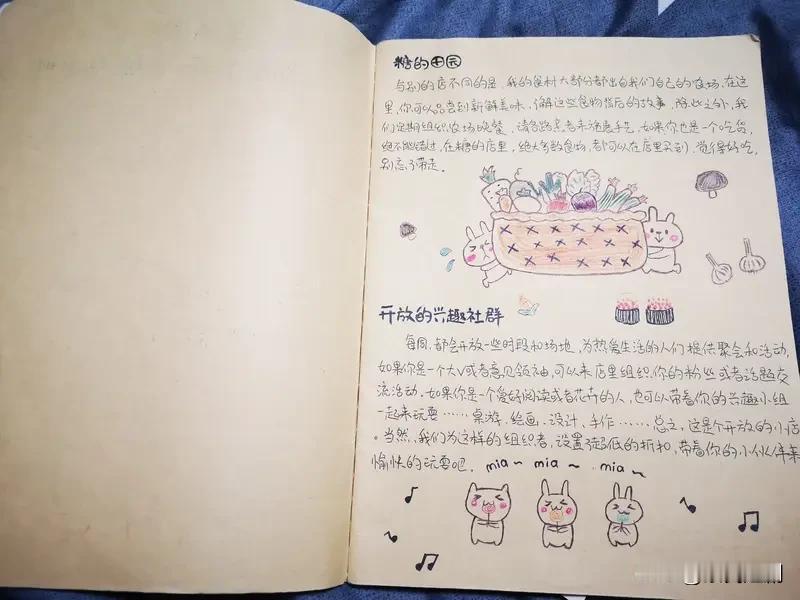 糖的田园
与别的店不同的是,我的食材大部分都出自我们自己的农场,在这
里,你可以品尝到新鲜美味,了解这些食物背后的故事,除此之外,我
们定期组织农场晚餐,请各路主者来施展手艺,如果你也是一个吃货,
绝不能错过,在糖的店里,绝大多数食物,都可以在店里买到,觉得好吃,
别忘了带走。
开放的兴趣社群
每周,都会开放一些时段和场地,为热爱生活的人们提供聚会和活动,
如果你是一个大V或者意见领袖,可以来店里组织你的粉丝或者话题交
流活动。如果你是一个爱好阅读或者花卉的人,也可以带着你的兴趣小组
一起来玩耍……桌游、绘画、设计、手作……总之,这是个开放的小店
。当然,我们为这样的组织者,设置了超低的折扣,带着你的小伙伴来
愉快的玩耍吧。mia~ mia~ mia~